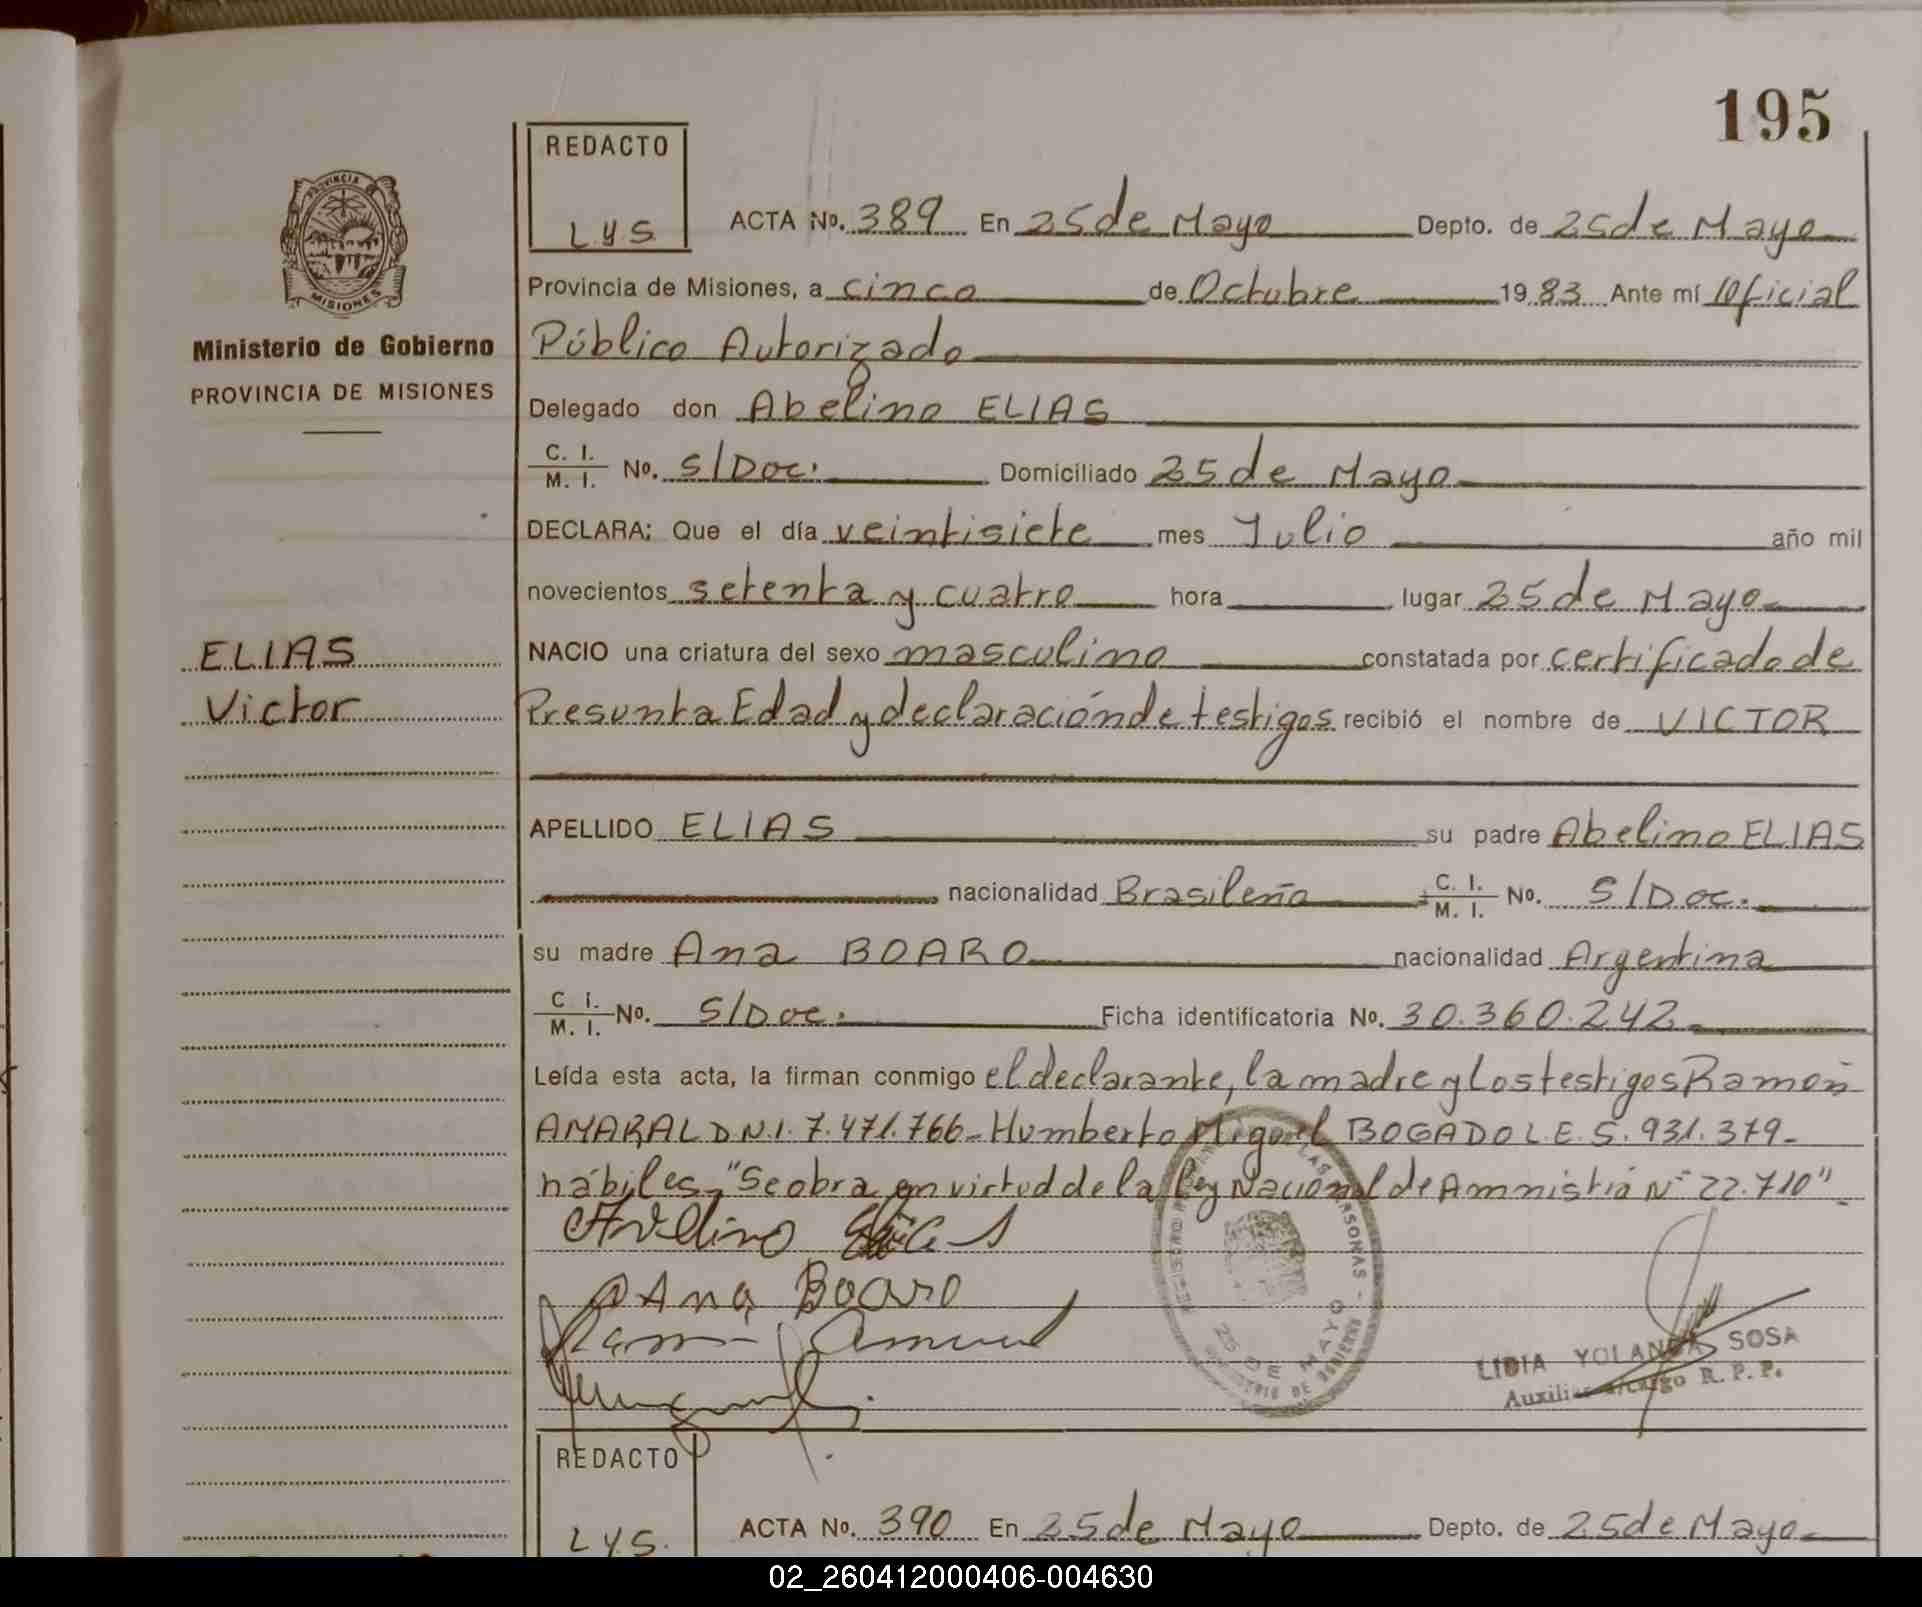 195
REDACTO
L.Y.S.
PROVINCIA
MISIONES
Ministerio de Gobierno
PROVINCIA DE MISIONES
ACTA No. 389 En 25 de Mayo Depto. de 25 de Mayo
Provincia de Misiones, a cinco de Octubre 19 83 Ante mí Oficial
Público Autorizado
Delegado don Abelino ELIAS
C. I.
M. I. No. S/Doc. Domiciliado 25 de Mayo
DECLARA: Que el día veintisiete mes Julio año mil
novecientos setenta y cuatro hora lugar 25 de Mayo
ELIAS
Victor
NACIO una criatura del sexo masculino constatada por certificado de
Presunta Edad y declaración de testigos recibió el nombre de VICTOR
APELLIDO ELIAS su padre Abelino ELIAS
nacionalidad Brasileña C. I. M. I. No. S/Doc.
su madre Ana BOARO nacionalidad Argentina
C I. M. I. No. S/Doc. Ficha identificatoria No. 30.360.242
Leída esta acta, la firman conmigo el declarante, la madre y Los testigos Ramón
AMARAL D.N.I. 7.471.766- Humberto Miguel BOGADO L.E. 5.931.379-
hábiles, "Se obra en virtud de la Ley Nacional de Amnistia N° 22.710"
Avelino
Ana Boaro
25 DE MAYO
LIDIA YOLANDA SOSA
Auxiliar a/cargo R. P. P.
REDACTO
L.Y.S.
ACTA No. 390 En 25 de Mayo Depto. de 25 de Mayo
02_260412000406-004630